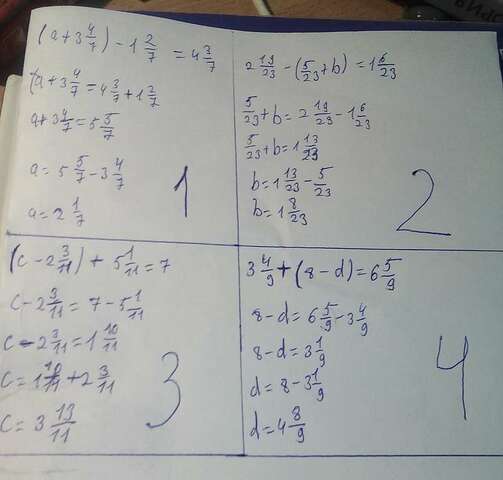 (a+3 4/7) - 1 2/7 = 4 3/7
a+3 4/7 = 4 3/7 + 1 2/7
a+3 4/7 = 5 5/7
a = 5 5/7 - 3 4/7
a = 2 1/7
1
2 19/23 - (5/23 + b) = 1 6/23
5/23 + b = 2 19/23 - 1 6/23
5/23 + b = 1 13/23
b = 1 13/23 - 5/23
b = 1 8/23
2
(c - 2 3/11) + 5 1/11 = 7
c - 2 3/11 = 7 - 5 1/11
c - 2 3/11 = 1 10/11
c = 1 10/11 + 2 3/11
c = 3 13/11
3
3 4/9 + (8 - d) = 6 5/9
8 - d = 6 5/9 - 3 4/9
8 - d = 3 1/9
d = 8 - 3 1/9
d = 4 8/9
4